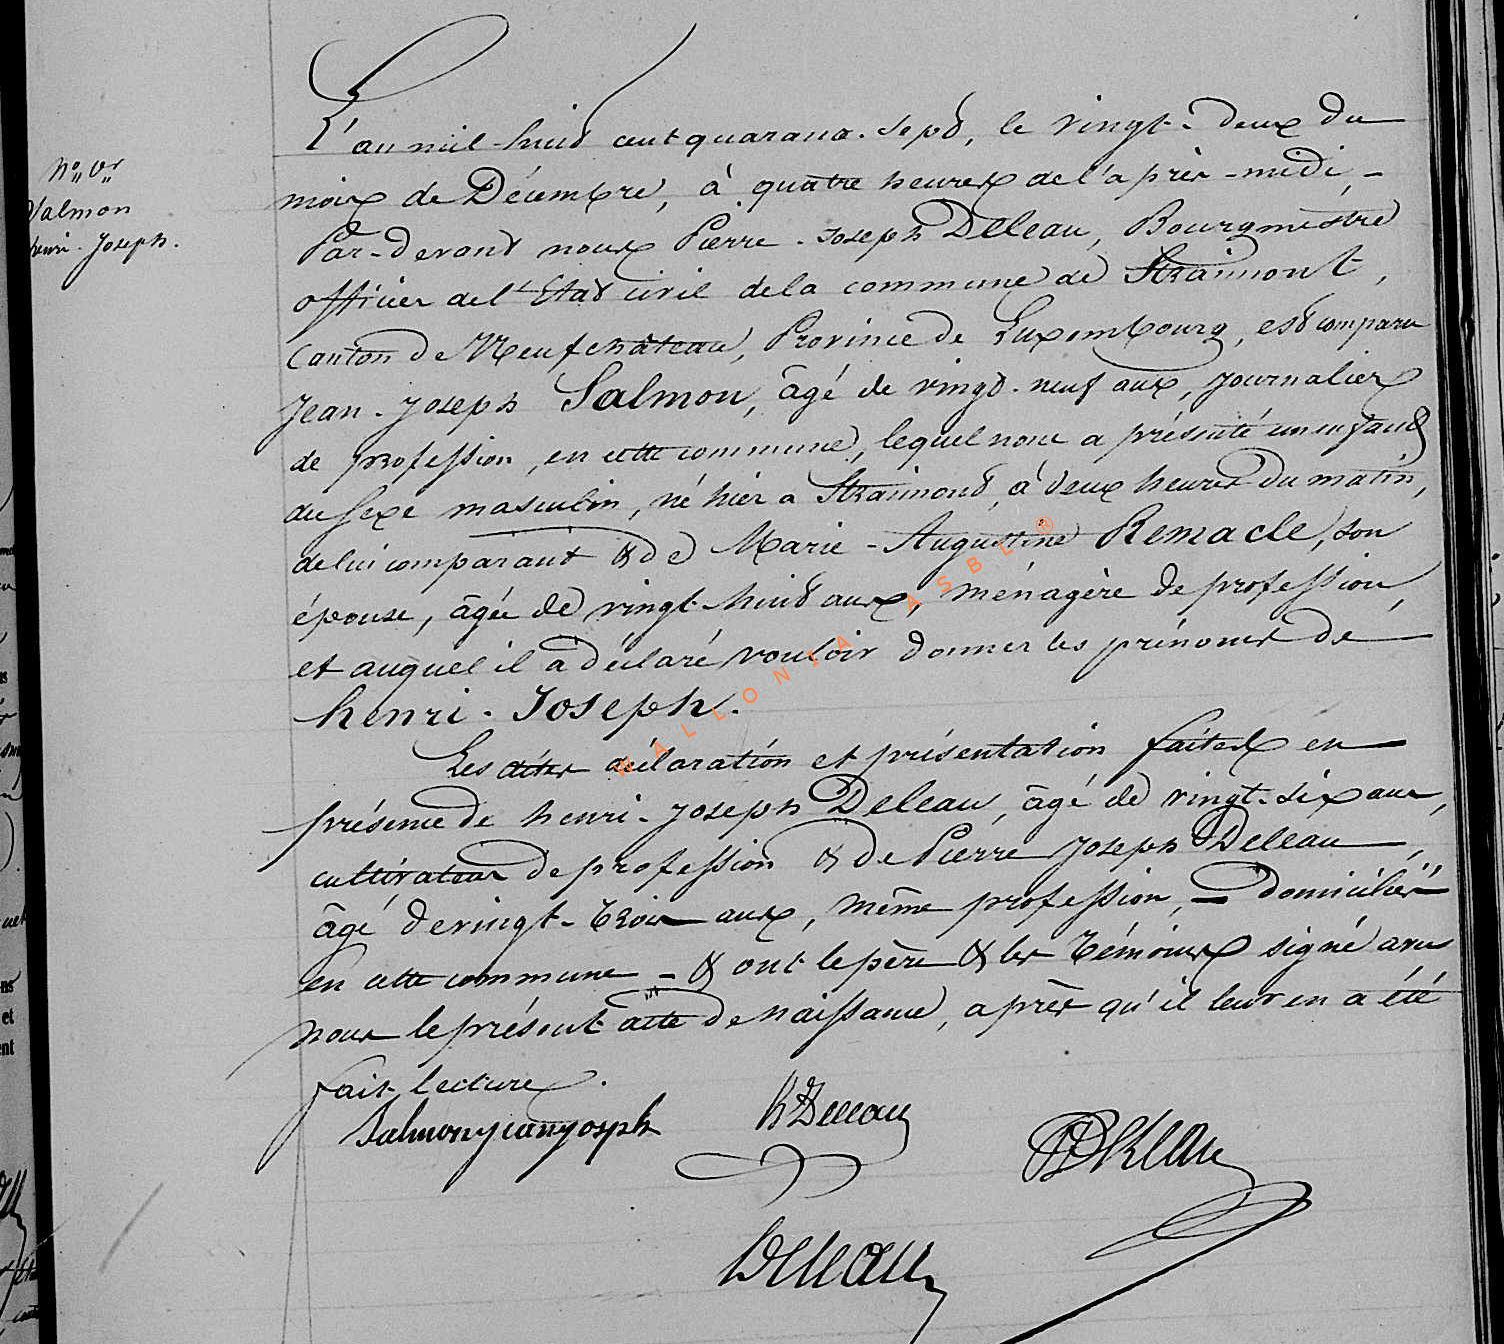 Salmon
henri-Joseph.
L'an mil-huit cent quarante-Sept, le vingt-deux du
mois de Décembre, à quatre heures de l'après-midi, -
Par-devant nous Pierre-Joseph Deleau, Bourgmestre
officier de l'Etat civil de la commune de Straimont,
Canton de Neufchâteau, Province de Luxembourg, est comparu
Jean-Joseph Salmon, âgé de vingt-neuf ans, journalier
de profession, en cette commune, lequel nous a présenté un enfant
du sexe masculin, né hier à Straimont à deux heures du matin,
de lui comparant & de Marie-Augustine Remacle, son
épouse, âgée de vingt-huit ans, ménagère de profession,
et auquel il a déclaré vouloir donner les prénoms de
henri-Joseph.
Les dites déclaration et présentation faites en
présence de henri-Joseph Deleau, âgé de vingt-six ans,
cultivateur de profession & de Pierre Joseph Deleau,
âgé de vingt-trois ans, même profession, - domiciliés
en cette commune - & ont le père & les témoins signé avec
nous le présent acte de naissance, après qu'il leur en a été
fait lecture.
Salmon jean joseph
h Deleau
PJ Deleau
Deleau
WALLONIA ASBL ®